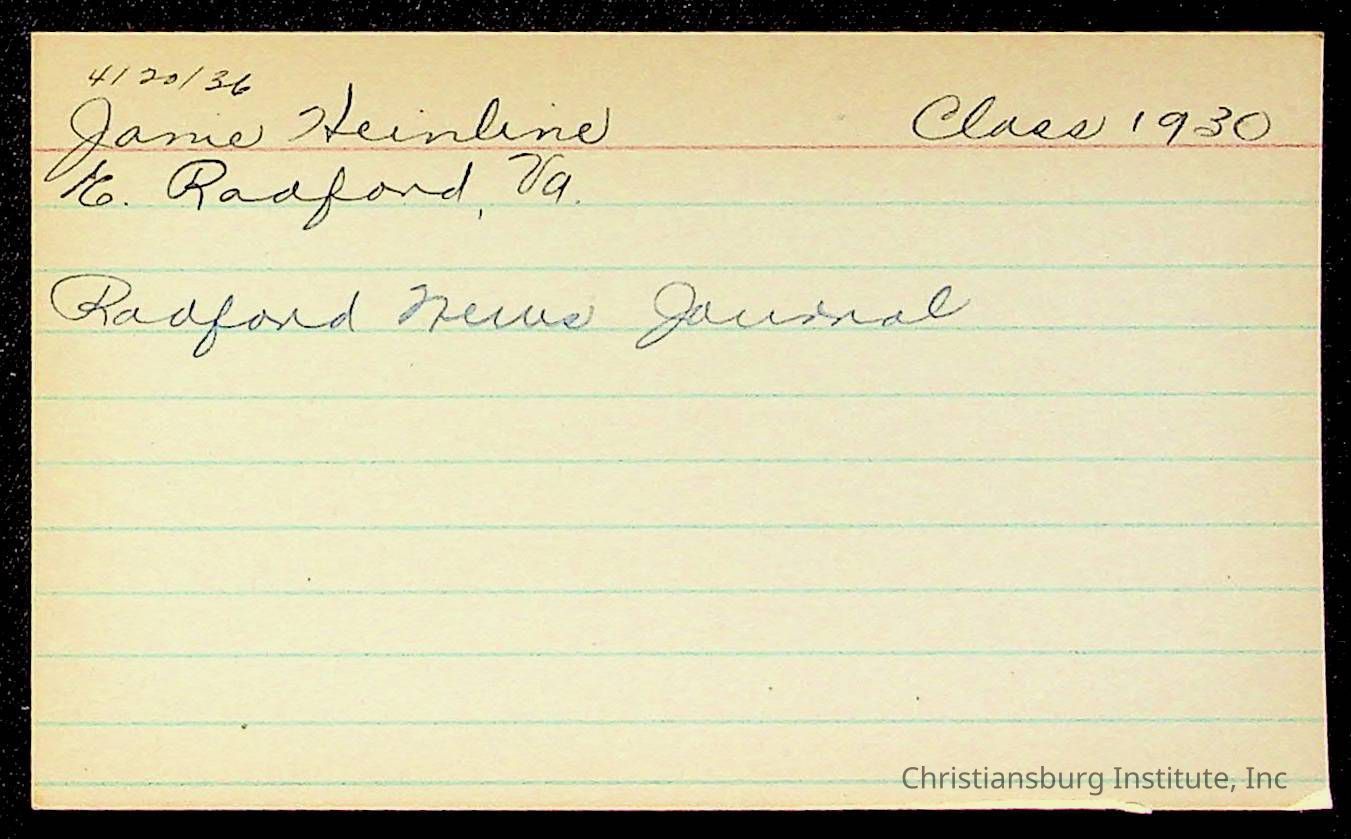 4/20/36
Jamie Heinline Class 1930
E. Radford, Va.
Radford News Journal
Christiansburg Institute, Inc